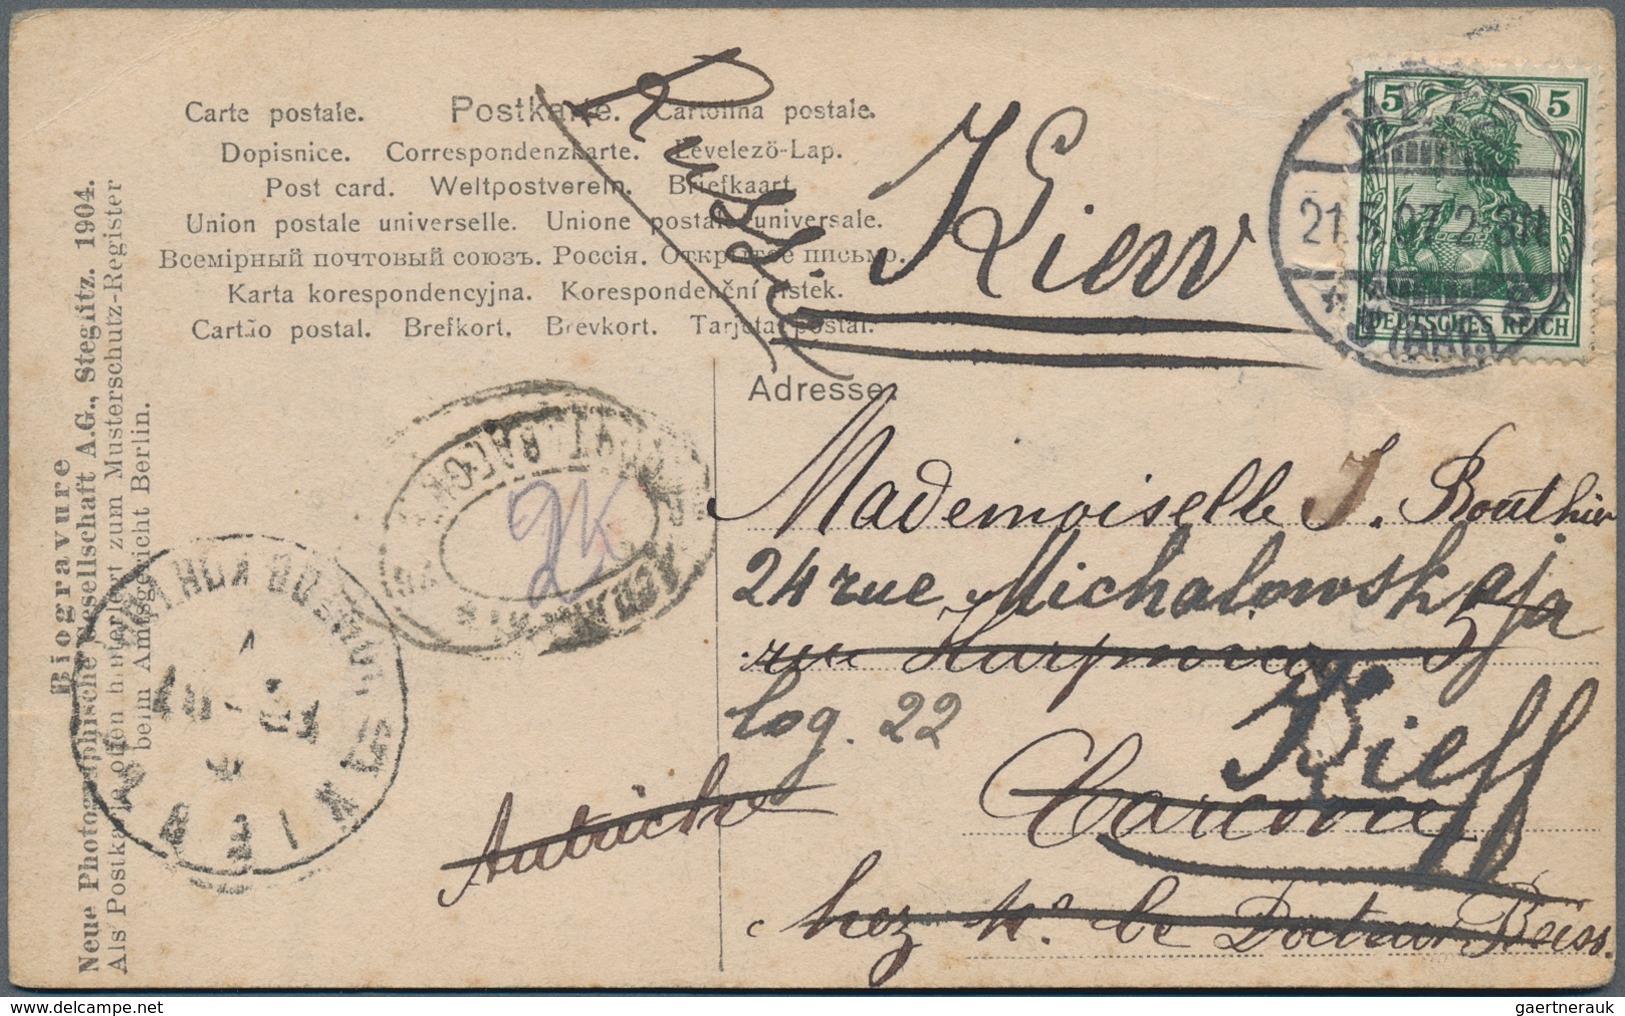 Carte postale. Postkarte. Cartolina postale.
Dopisnice. Correspondenzkarte. Levelező-Lap.
Post card. Weltpostverein. Briefkaart.
Union postale universelle. Unione postale universale.
Всемірный почтовый союзъ. Россія. Открытое письмо.
Karta korespondencyjna. Korespondenční lístek.
Cartão postal. Brefkort. Brevkort. Tarjeta postal.
Kiew
5 5
DEUTSCHES REICH
21.5.07.2-3N
Adresse.
Mademoiselle J. Bouthier
24 rue Michalowskaja
rue
log. 22
Kieff
Autriche
chez Mr. le Docteur Beiss.
Biogravure
Neue Photographische Gesellschaft A.G., Steglitz. 1904.
Als Postkarte offen hinterlegt zum Musterschutz-Register
beim Amtsgericht Berlin.
gaertnerauk@gmail.com